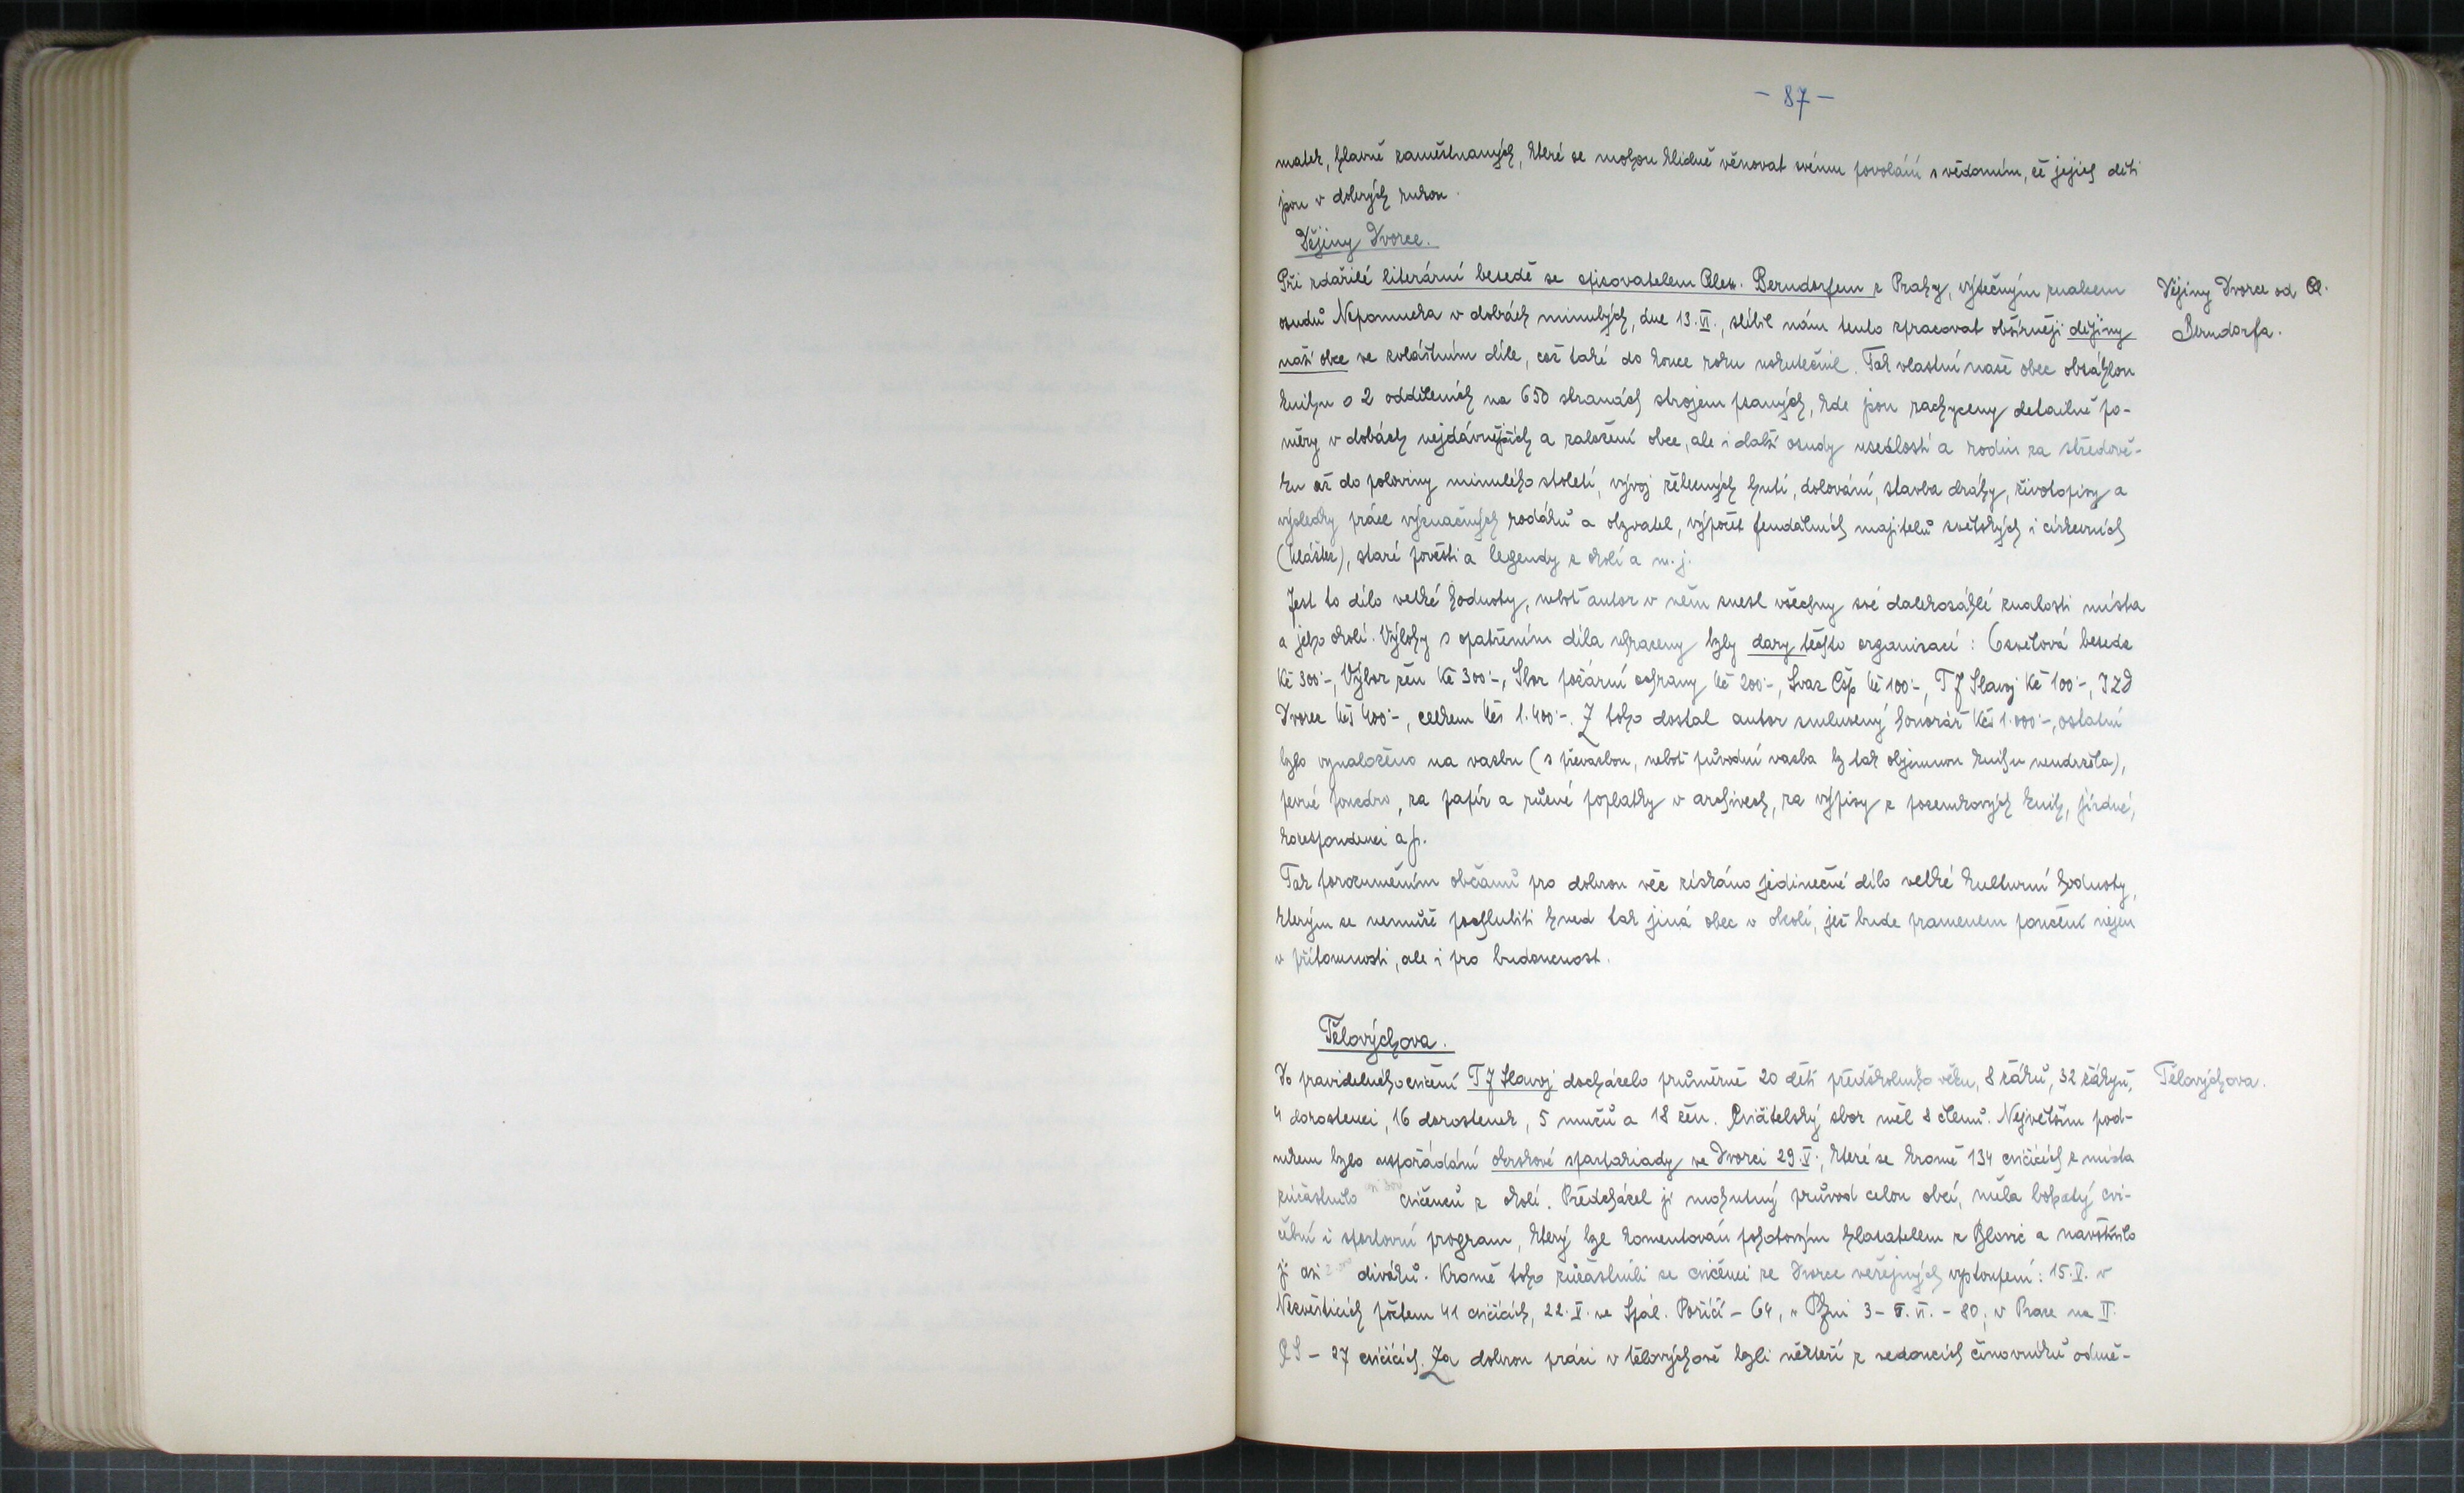 - 87 -
matek, hlavně zaměstnaných, které se mohou klidně věnovat svému povolání s vědomím, že jejich děti
jsou v dobrých rukou.
Dějiny Dvorce.
Při zdařilé literární besedě se spisovatelem Alex. Berndorfem z Prahy, výtečným znalcem
osudů Nepomucka v dobách minulých, dne 13.VI., slíbil nám tento zpracovat obšírněji dějiny
naší obce ve zvláštním díle, což také do konce roku uskutečnil. Tak vlastní naše obec obsáhlou
knihu o 2 odděleních na 650 stranách strojem psaných, kde jsou zachyceny detailně po-
měry v dobách nejdávnějších a založení obce, ale i další osudy usedlostí a rodin za středově-
ku až do poloviny minulého století, vývoj železných hutí, dolování, stavba dráhy, životopisy a
výsledky práce význačných rodáků a obyvatel, výpočet feudálních majitelů světských i církevních
(klášter), staré pověsti a legendy z okolí a m. j.
Jest to dílo velké hodnoty, neboť autor v něm snesl všechny své dalekosáhlé znalosti místa
a jeho okolí. Výlohy s opatřením díla uhrazeny byly dary těchto organisací: Osvětová beseda
Kč 300·-, Výbor žen Kč 300·-, Sbor požární ochrany Kč 200·-, Svaz Čsp Kč 100·-, TJ Slavoj Kč 100·-, JZD
Dvorec Kčs 400·-, celkem Kčs 1.400·-. Z toho dostal autor smluvený honorář Kčs 1.000·-, ostatní
bylo vynaloženo na vazbu (s převazbou, neboť původní vazba by tak objemnou knihu neudržela),
pevné pouzdro, za papír a různé poplatky v archivech, za výpisy z pozemkových knih, jízdné,
korespondenci a p.
Tak porozuměním občanů pro dobrou věc získáno jedinečné dílo velké kulturní hodnoty,
kterým se nemůže pochlubiti hned tak jiná obec v okolí, jež bude pramenem poučení nejen
v přítomnosti, ale i pro budoucnost.
Tělovýchova.
Do pravidelného cvičení TJ Slavoj docházelo průměrně 20 dětí předškolního věku, 8 žáků, 32 žákyň,
4 dorostenci, 16 dorostenek, 5 mužů a 18 žen. Cvičitelský sbor měl 8 členů. Největším pod-
nikem bylo uspořádání okrskové spartakiady ve Dvorci 29.V., které se kromě 134 cvičících z místa
zúčastnilo asi 300 cvičenců z okolí. Předcházel jí mohutný průvod celou obcí, měla bohatý cvi-
čební i sportovní program, který byl komentován pohotovým hlasatelem z Blovic a navštívilo
ji asi diváků. Kromě toho zúčastnili se cvičenci ze Dvorce veřejných vystoupení: 15.V. v
Nezvěsticích počtem 41 cvičících, 22.V. ve Spál. Poříčí - 64, v Plzni 3-5.VI. - 80, v Praze na II.
CS - 27 cvičících. Za dobrou práci v tělovýchově byli někteří z vedoucích činovníků odmě-
Dějiny Dvorce od Al.
Berndorfa.
Tělovýchova.